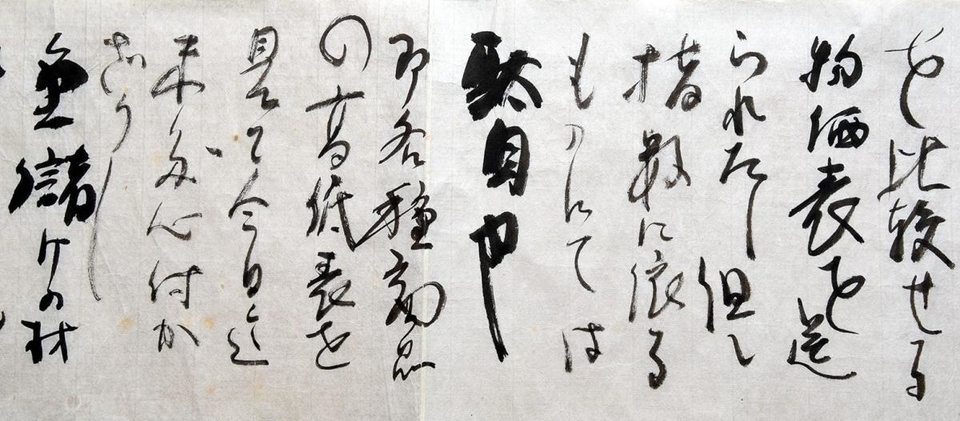 を比較せる
物価表を送
られたし但し
指数に依る
ものにては
駄目也
即各種商品
の高低表を
見て今日迄
未た心付か
ざりし
金儲ケの材